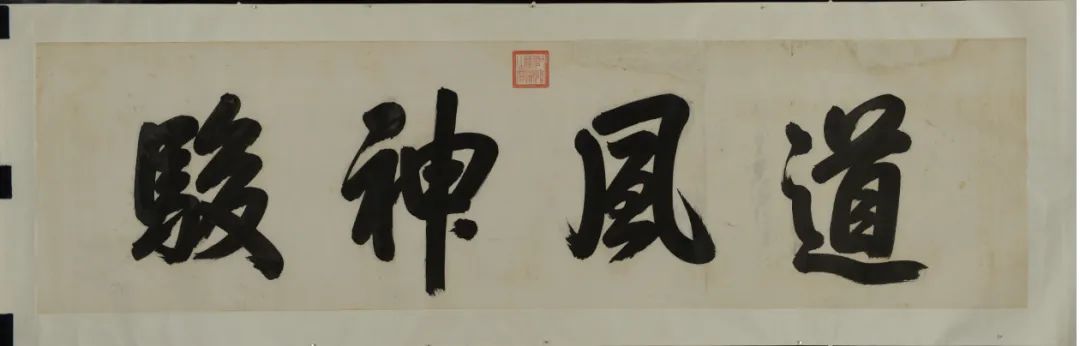 道風神駿